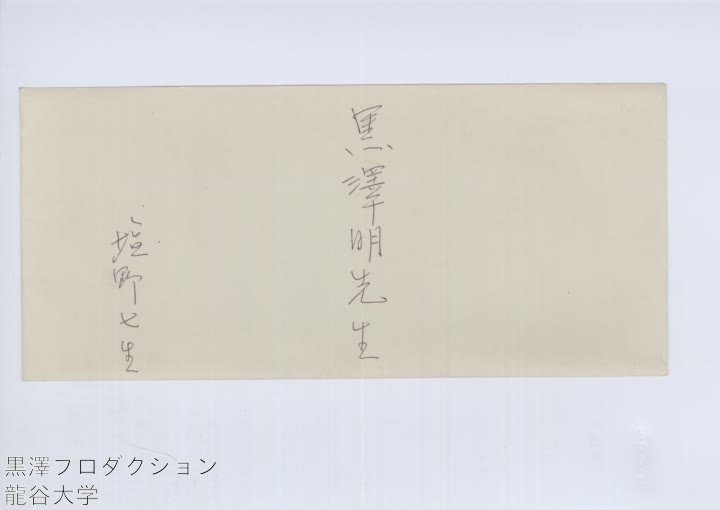 黒澤明先生
塩野七生
黒澤フロダクション
龍谷大学